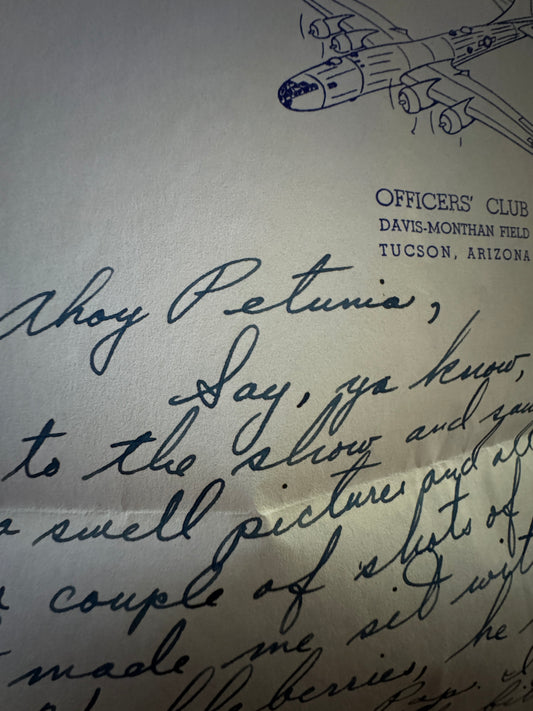 OFFICERS' CLUB
DAVIS-MONTHAN FIELD
TUCSON, ARIZONA
Ahoy Petunia,
Say, ya know,
to the show and saw
a swell pictures and all
couple of shots of
made me sit wit
berries, he
Pop.